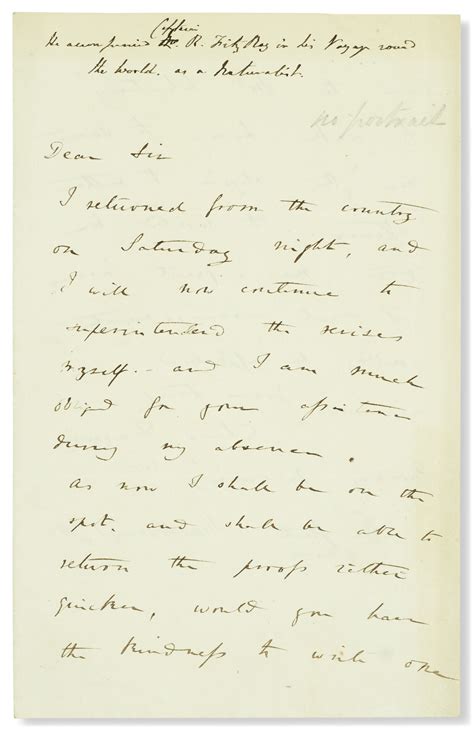 Captain
He accompanied Mr. R. Fitz Roy in his Voyage round
the World. as a Naturalist.
no portrait
Dear Sir
I returned from the country
on Saturday night, and
I will now continue to
superintend the revises
myself.– and I am much
obliged for your assistance
during my absence.
As now I shall be on the
spot, and shall be able to
return the proofs rather
quicker, would you have
the kindness to write one